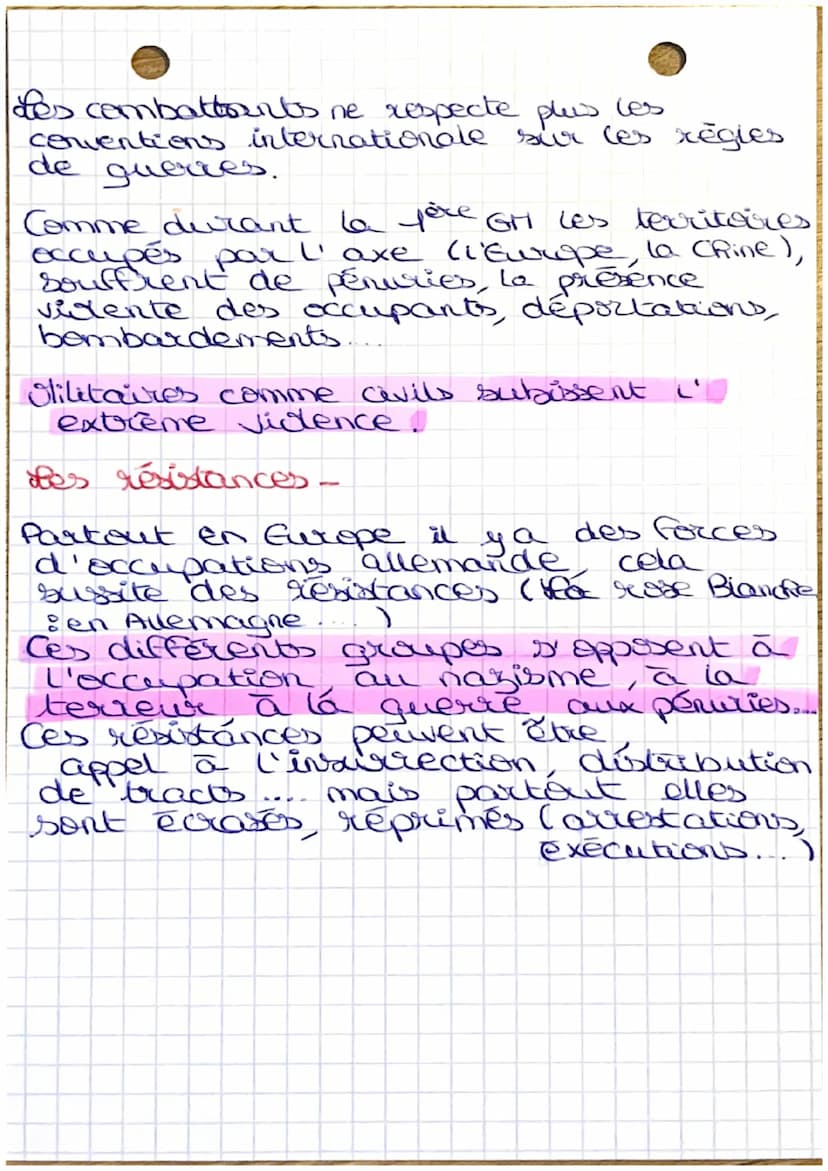 Les combattants ne respecte plus les
conventions internationale sur les règles
de guerres.
Comme durant la 1ère GM les territoires
occupés par l'axe (l'Europe, la Chine),
souffrent de pénuries, la présence
violente des occupants, déportations,
bombardements...
Militaires comme civils subissent l'
extrême violence.
Les résistances -
Partout en Europe il y a des forces
d'occupations allemande, cela
sussite des résistances (la rose Blanche
: en Allemagne ....)
Ces différents groupes s'opposent à
l'occupation au nazisme, à la
terreur à la guerre aux pénuries...
Ces résistances peuvent être
appel à l'insurrection, distribution
de tracts .... mais partout elles
sont écrasés, réprimés (arrestations,
exécutions...)